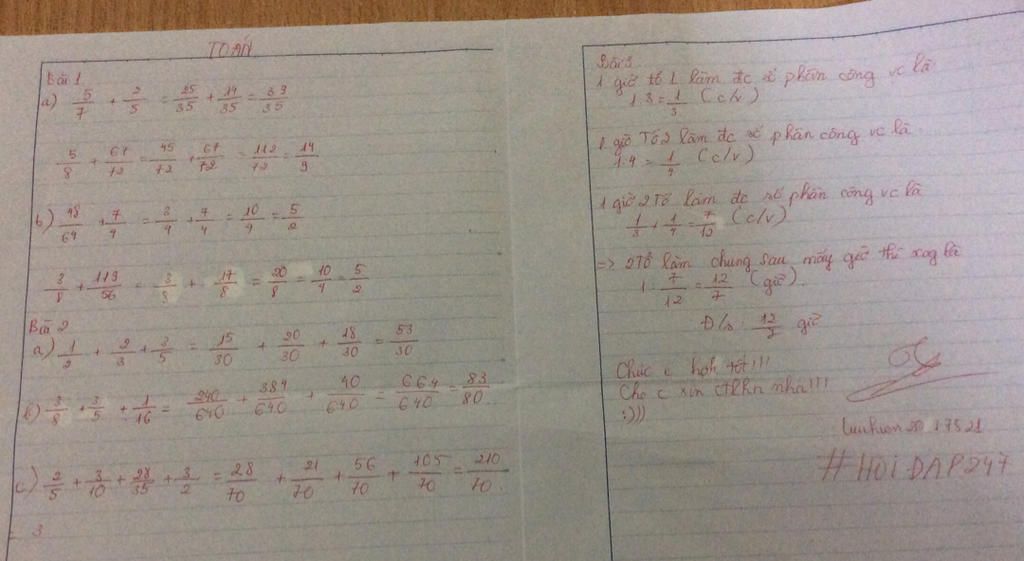 TOÁN
Bài 1
a) 5/7 + 2/5 = 25/35 + 14/35 = 39/35
5/8 + 67/72 = 45/72 + 67/72 = 112/72 = 14/9
b) 48/64 + 7/4 = 3/4 + 7/4 = 10/4 = 5/2
3/8 + 119/56 = 3/8 + 17/8 = 20/8 = 10/4 = 5/2
Bài 2
a) 1/2 + 2/3 + 3/5 = 15/30 + 20/30 + 18/30 = 53/30
b) 3/8 + 3/5 + 1/16 = 240/640 + 384/640 + 40/640 = 664/640 = 83/80
c) 2/5 + 3/10 + 28/35 + 3/2 = 28/70 + 21/70 + 56/70 + 105/70 = 210/70
3
Bài 3
1 giờ tổ 1 làm đc số phần công vc là
1:3 = 1/3 (c/v)
1 giờ Tổ 2 làm đc số phần công vc là
1:4 = 1/4 (c/v)
1 giờ 2 Tổ làm đc số phần công vc là
1/3 + 1/4 = 7/12 (c/v)
=> 2 Tổ làm chung sau mấy giờ thì xog là
1 : 7/12 = 12/7 (giờ).
Đ/s: 12/7 giờ
Chúc c học tốt!!!
Cho c xin ctlhn nha!!!
:)))
luuhien2017521
#HOIDAP247